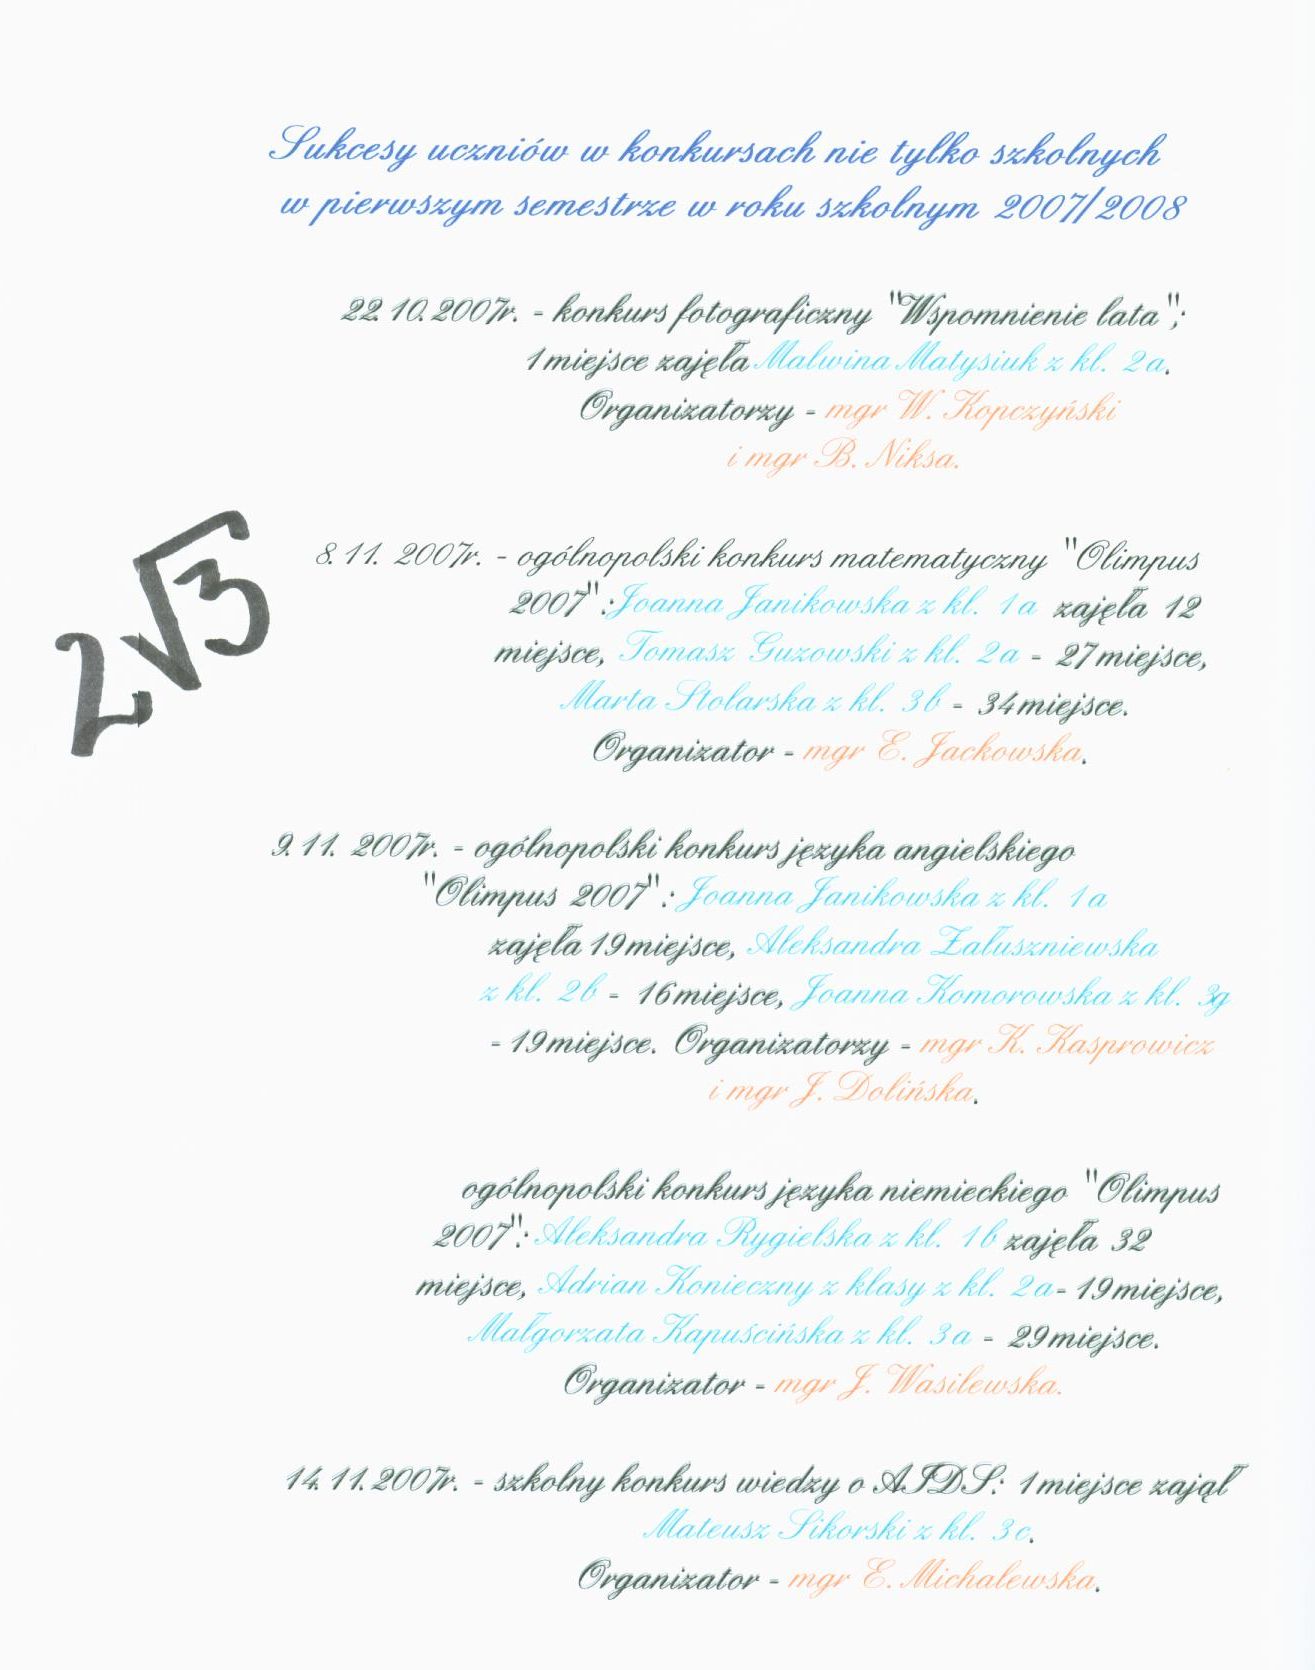 Sukcesy uczniów w konkursach nie tylko szkolnych
w pierwszym semestrze w roku szkolnym 2007/2008
22.10.2007r. - konkurs fotograficzny "Wspomnienie lata";
1 miejsce zajęła Malwina Matysiuk z kl. 2a.
Organizatorzy - mgr W. Kopczyński
i mgr B. Niksa.
2√3
8.11. 2007r. - ogólnopolski konkurs matematyczny "Olimpus
2007" : Joanna Janikowska z kl. 1a zajęła 12
miejsce, Tomasz Guzowski z kl. 2a - 27 miejsce,
Marta Stolarska z kl. 3b - 34 miejsce.
Organizator - mgr E. Jackowska.
9.11. 2007r. - ogólnopolski konkurs języka angielskiego
"Olimpus 2007" : Joanna Janikowska z kl. 1a
zajęła 19 miejsce, Aleksandra Załuszniewska
z kl. 2b - 16 miejsce, Joanna Komorowska z kl. 3g
- 19 miejsce. Organizatorzy - mgr K. Kasprowicz
i mgr J. Dolińska.
ogólnopolski konkurs języka niemieckiego "Olimpus
2007": Aleksandra Rygielska z kl. 1b zajęła 32
miejsce, Adrian Konieczny z klasy z kl. 2a - 19 miejsce,
Małgorzata Kapuścińska z kl. 3a - 29 miejsce.
Organizator - mgr J. Wasilewska.
14.11.2007r. - szkolny konkurs wiedzy o AIDS: 1 miejsce zajął
Mateusz Sikorski z kl. 3c.
Organizator - mgr E. Michalewska.